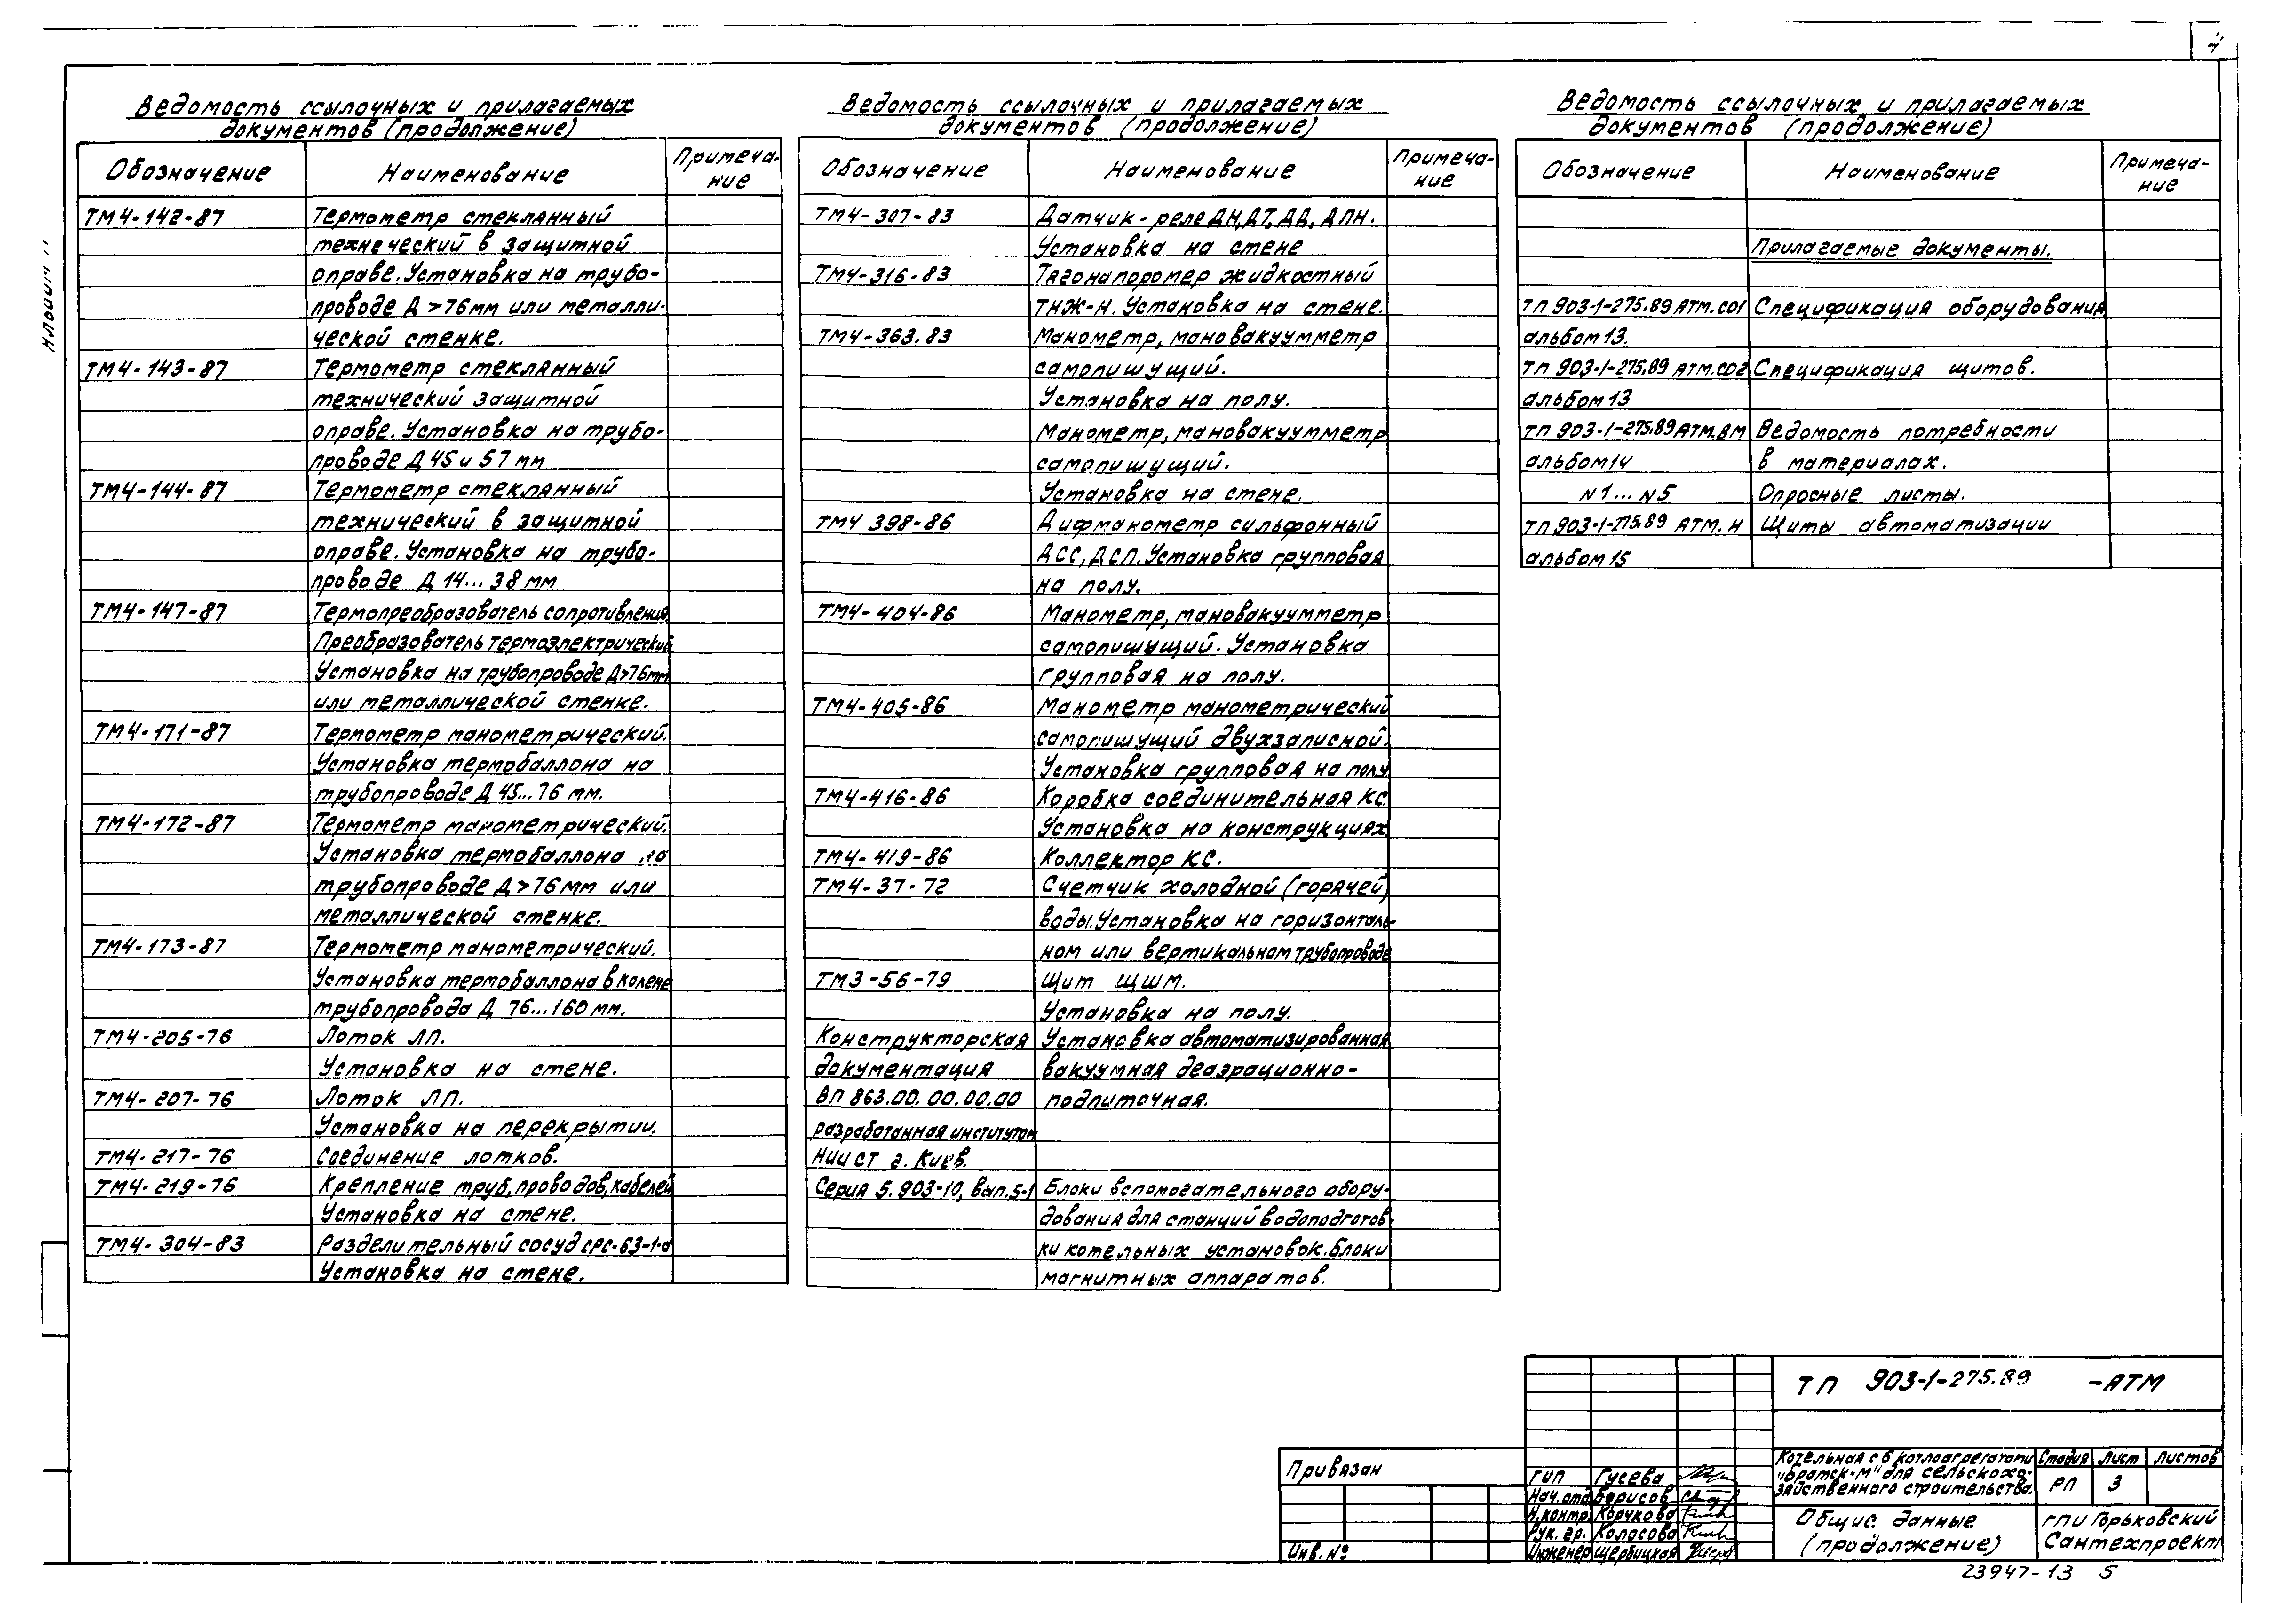 4
Альбом 11
Ведомость ссылочных и прилагаемых
документов (продолжение)
Обозначение Наименование Примеча-
ние
ТМ4-142-87 Термометр стеклянный
технеческий в защитной
оправе. Установка на трубо-
проводе Д > 76 мм или металли-
ческой стенке.
ТМ4-143-87 Термометр стеклянный
технический защитной
оправе. Установка на трубо-
проводе Д 45 и 57 мм
ТМ4-144-87 Термометр стеклянный
технический в защитной
оправе. Установка на трубо-
проводе Д 14...38 мм
ТМ4-147-87 Термопреобразователь сопротивления.
Преобразователь термоэлектрический
Установка на трубопроводе Д>76мм
или металлической стенке.
ТМ4-171-87 Термометр манометрический.
Установка термобаллона на
трубопроводе Д 45...76 мм.
ТМ4-172-87 Термометр манометрический.
Установка термобаллона на
трубопроводе Д > 76 мм или
металлической стенке.
ТМ4-173-87 Термометр манометрический.
Установка термобаллона в колене
трубопровода Д 76...160 мм.
ТМ4-205-76 Лоток ЛП.
Установка на стене.
ТМ4-207-76 Лоток ЛП.
Установка на перекрытии.
ТМ4-217-76 Соединение лотков.
ТМ4-219-76 Крепление труб, проводов, кабелей
Установка на стене.
ТМ4-304-83 Разделительный сосуд СРС-63-1-а
Установка на стене.
Ведомость ссылочных и прилагаемых
документов (продолжение)
Обозначение Наименование Примеча-
ние
ТМ4-307-83 Датчик-реле ДН, ДТ, ДД, ДПН.
Установка на стене
ТМ4-316-83 Тягонапоромер жидкостный
ТНЖ-Н. Установка на стене.
ТМ4-363.83 Манометр, мановакуумметр
самопишущий.
Установка на полу.
Манометр, мановакуумметр
самопишущий.
Установка на стене.
ТМ4 398-86 Дифманометр сильфонный
ДСС, ДСП. Установка групповая
на полу.
ТМ4-404-86 Манометр, мановакуумметр
самопишущий. Установка
групповая на полу.
ТМ4-405-86 Манометр манометрический
самопишущий двухзаписной.
Установка групповая на полу
ТМ4-416-86 Коробка соединительная КС.
Установка на конструкциях
ТМ4-419-86 Коллектор КС.
ТМ4-37-72 Счетчик холодной (горячей)
воды. Установка на горизонталь-
ном или вертикальном трубопроводе
ТМ3-56-79 Щит ЩШМ.
Установка на полу.
Конструкторская Установка автоматизированная
документация вакуумная деаэрационно-
ВП 863.00.00.00.00 подпиточная.
разработанная институтом
НИИСТ г. Киев.
Серия 5.903-10, вып.5-1 Блоки вспомогательного обору-
дования для станций водоподготов-
ки котельных установок. Блоки
магнитных аппаратов.
Ведомость ссылочных и прилагаемых
документов (продолжение)
Обозначение Наименование Примеча-
ние
Прилагаемые документы.
ТП 903-1-275.89 АТМ.СО1 Спецификация оборудования
альбом 13.
ТП 903-1-275.89 АТМ.СО2 Спецификация щитов.
альбом 13
ТП 903-1-275.89 АТМ.ВМ Ведомость потребности
альбом 14 в материалах.
N1...N5 Опросные листы.
ТП 903-1-275.89 АТМ.Н Щиты автоматизации
альбом 15
ТП 903-1-275.89 -АТМ
Привязан
Инв. №
ГИП Гусева
Нач.отд Борисов
Н.контр. Корчкова
Рук. гр. Колосова
Инженер Щербицкая
Котельная с 6 котлоагрегатами
"Братск-М" для сельскохо-
зяйственного строительства.
Стадия Лист Листов
РП 3
Общие данные
(продолжение)
ГПИ Горьковский
Сантехпроект
23947-13 5